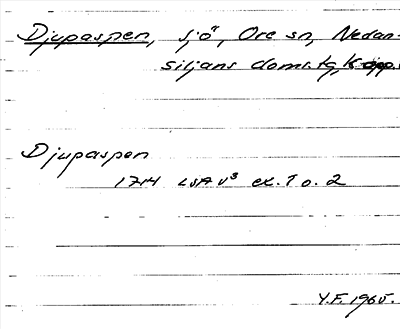 Djupaspen, sjö, Ore sn, Nedan-
siljans doms.tg, Kopp.
Djupaspen
1714 LSA V3 ex. 1 o. 2
Y.F. 1965.